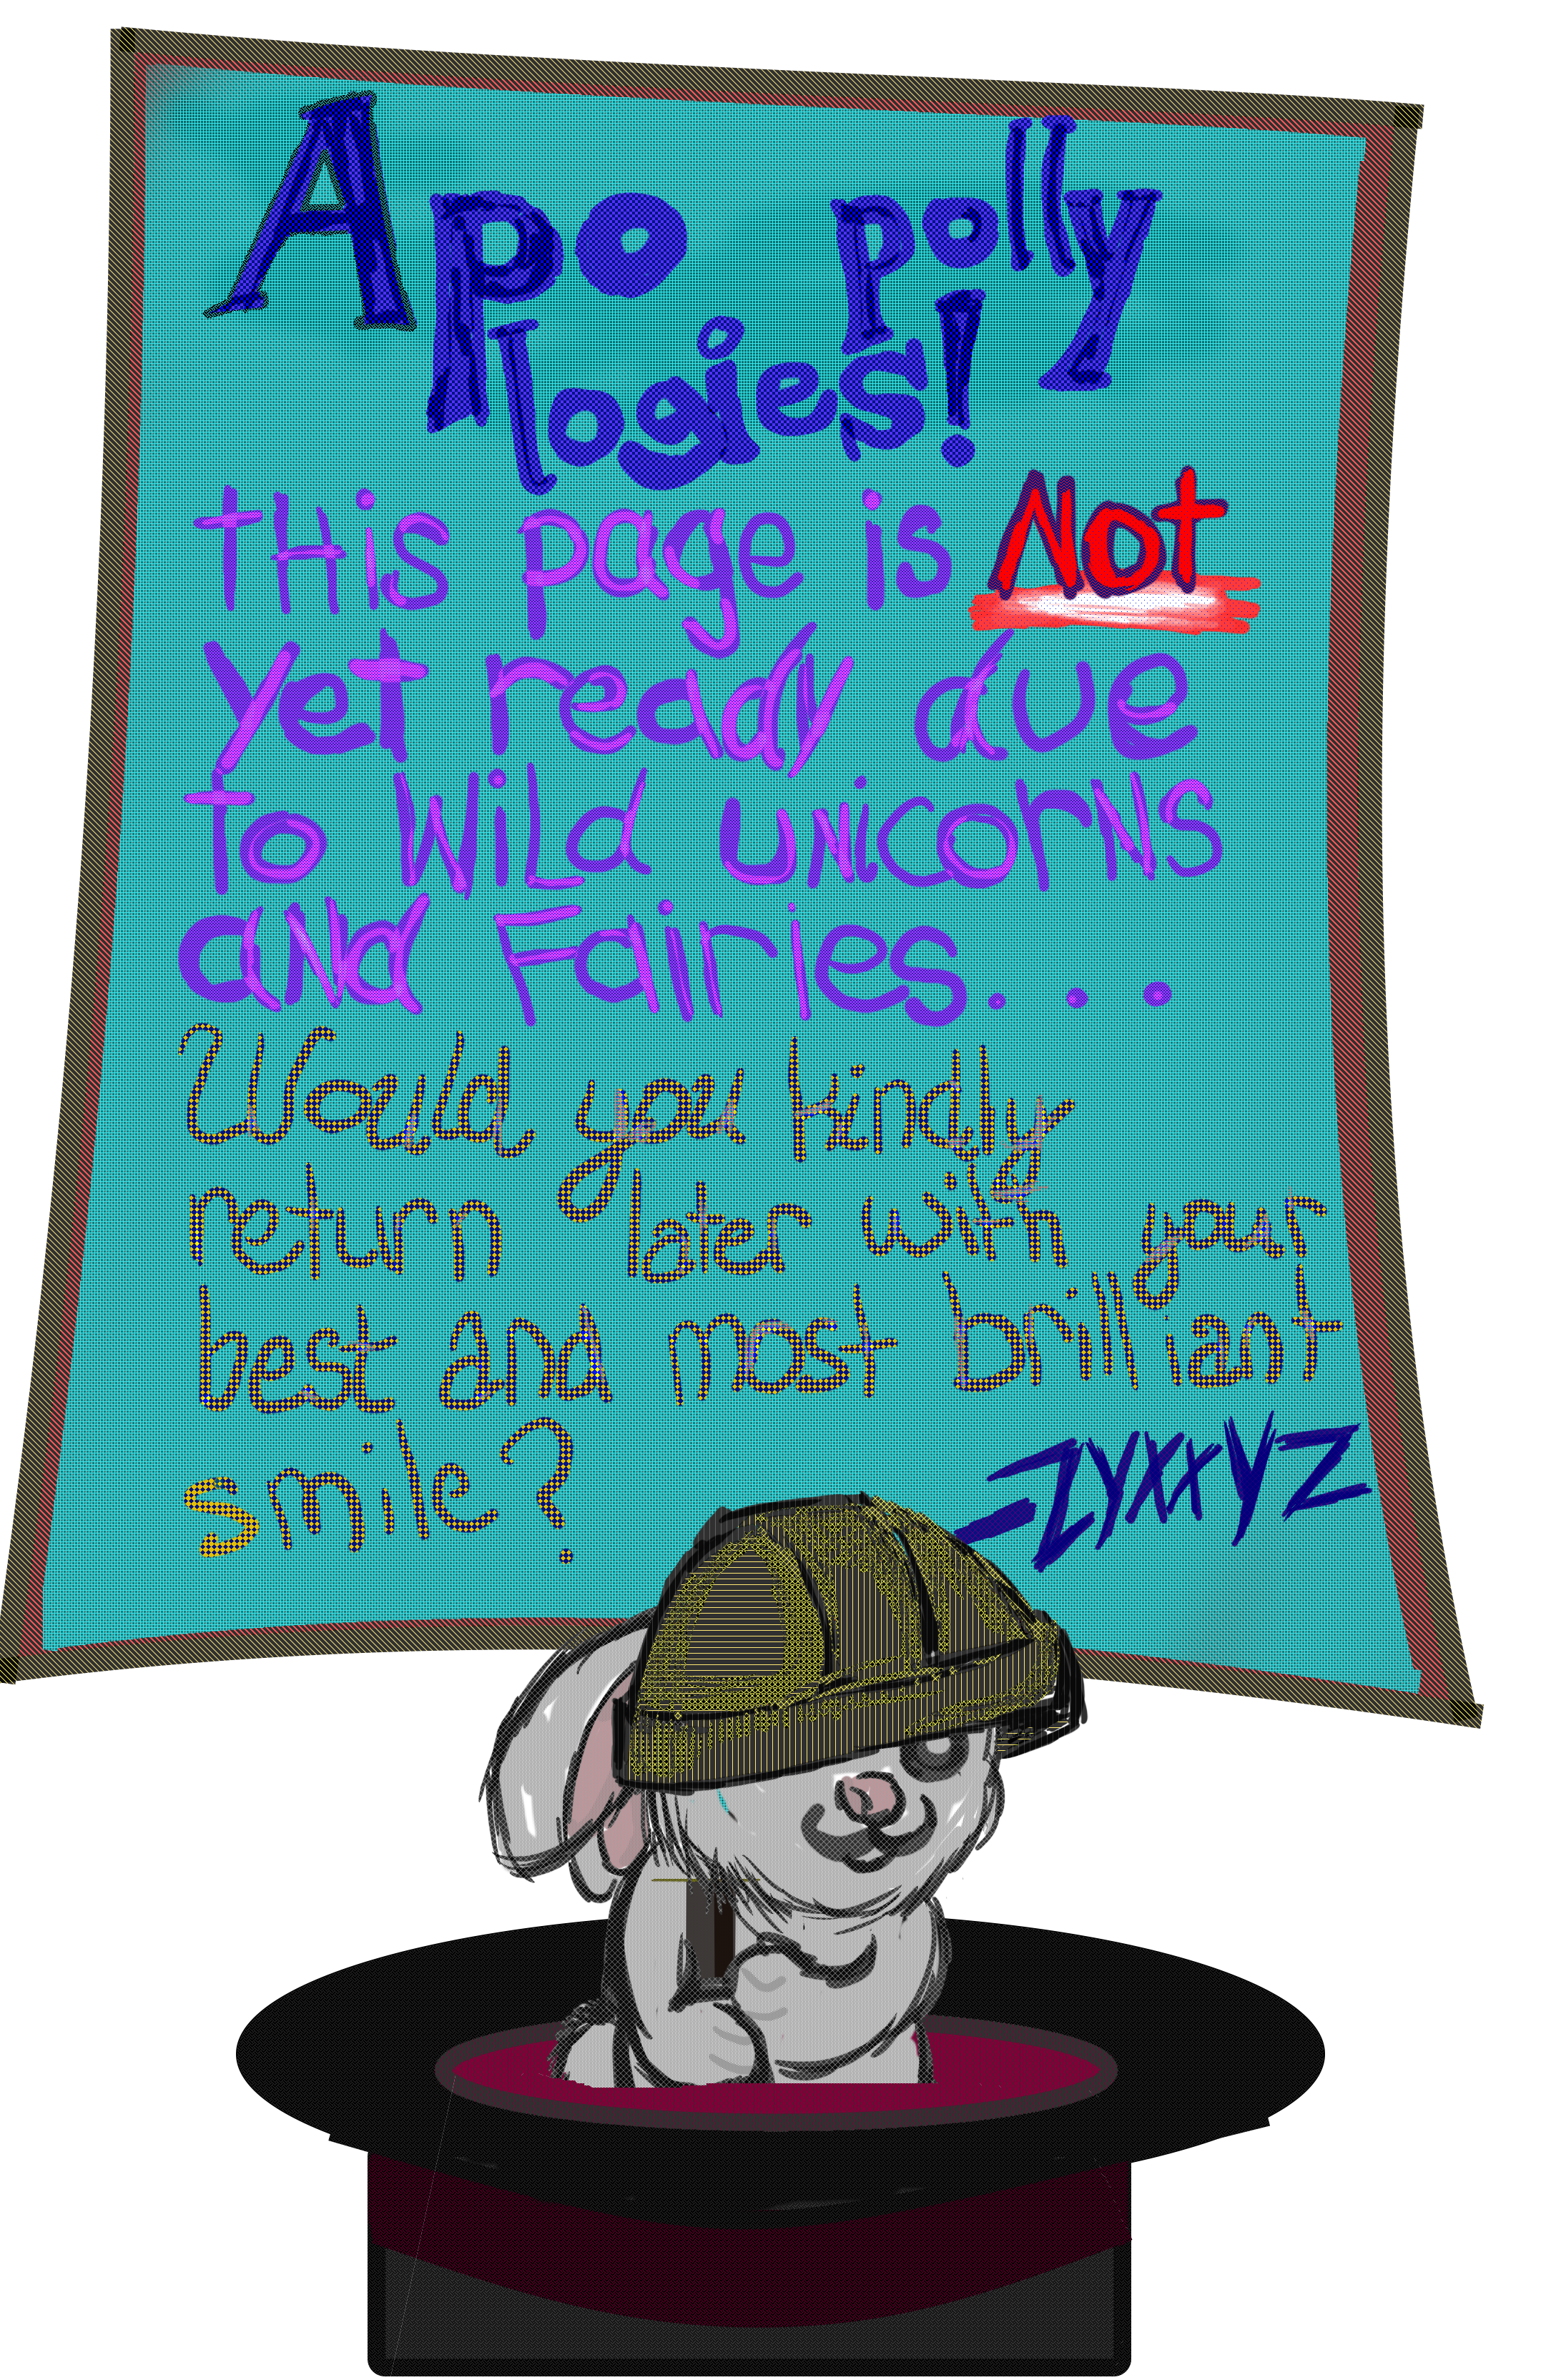 Apo polly
logies!
tHis page is Not
yet ready due
To WiLd uNicorNs
aNd Fairies...
Would you kindly
return later with your
best and most brilliant
smile?
-ZYXxYZ